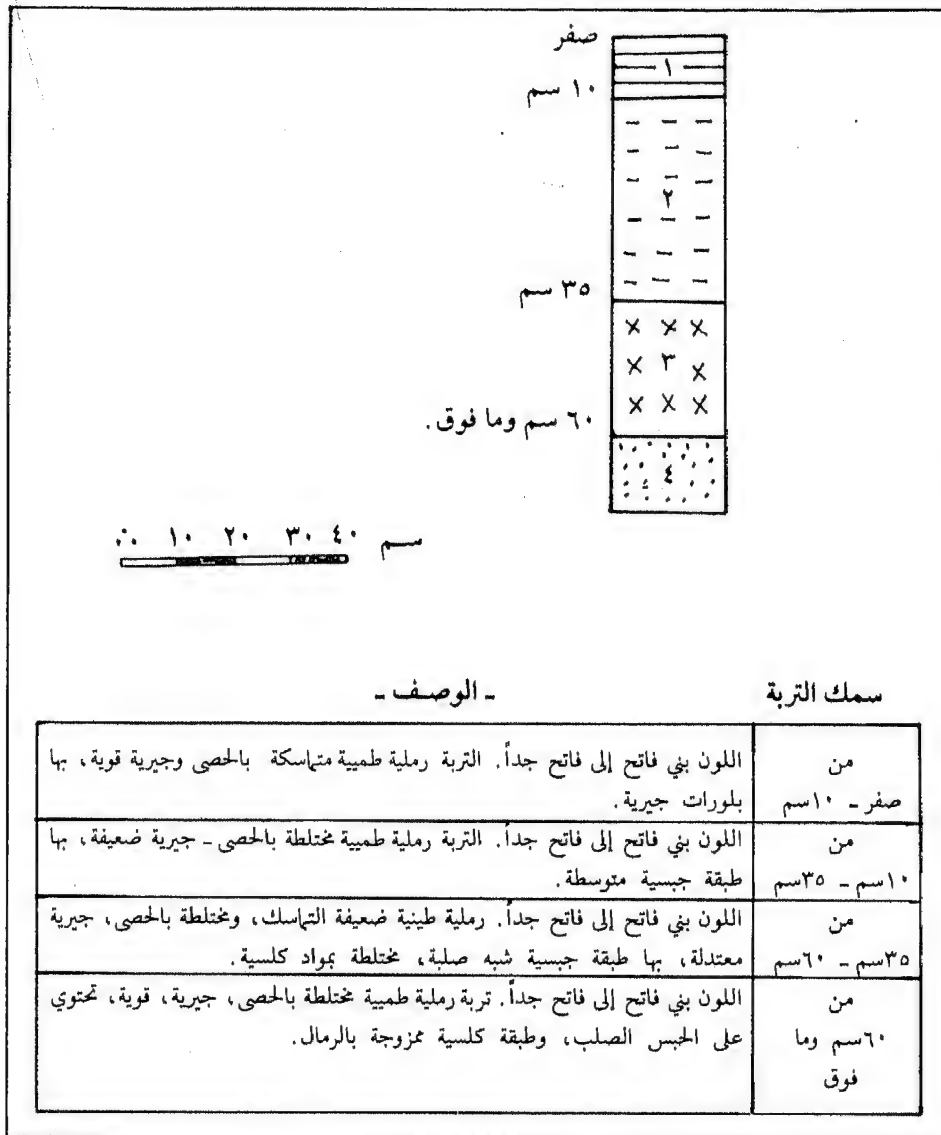 صفر
١
١٠ سم
٢
٣٥ سم
٣
٦٠ سم وما فوق.
٤
٠٠ ١٠ ٢٠ ٣٠ ٤٠ سم
سمك التربة
ـ الوصف ـ
من
صفر ـ ١٠سم
اللون بني فاتح إلى فاتح جداً. التربة رملية طميية متماسكة بالحصى وجيرية قوية، بها
بلورات جيرية.
من
١٠سم ـ ٣٥سم
اللون بني فاتح إلى فاتح جداً. التربة رملية طميية مختلطة بالحصى ـ جيرية ضعيفة، بها
طبقة جبسية متوسطة.
من
٣٥سم ـ ٦٠سم
اللون بني فاتح إلى فاتح جداً. رملية طينية ضعيفة التماسك، ومختلطة بالحصى، جيرية
معتدلة، بها طبقة جبسية شبه صلبة، مختلطة بمواد كلسية.
من
٦٠سم وما
فوق
اللون بني فاتح إلى فاتح جداً. تربة رملية طميية مختلطة بالحصى، جيرية، قوية، تحتوي
على الحبس الصلب، وطبقة كلسية ممزوجة بالرمال.